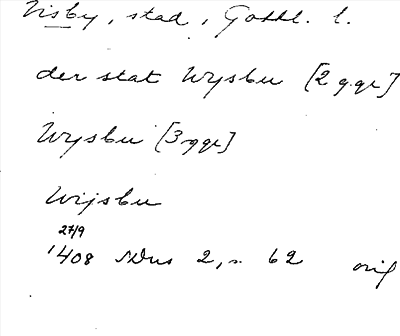 Visby, stad, Gottl. l.
der stat Wysbu [2 ggr]
Wysbu [3 ggr]
Wijsbu
27/9
1408 SDns 2, n. 62 orig